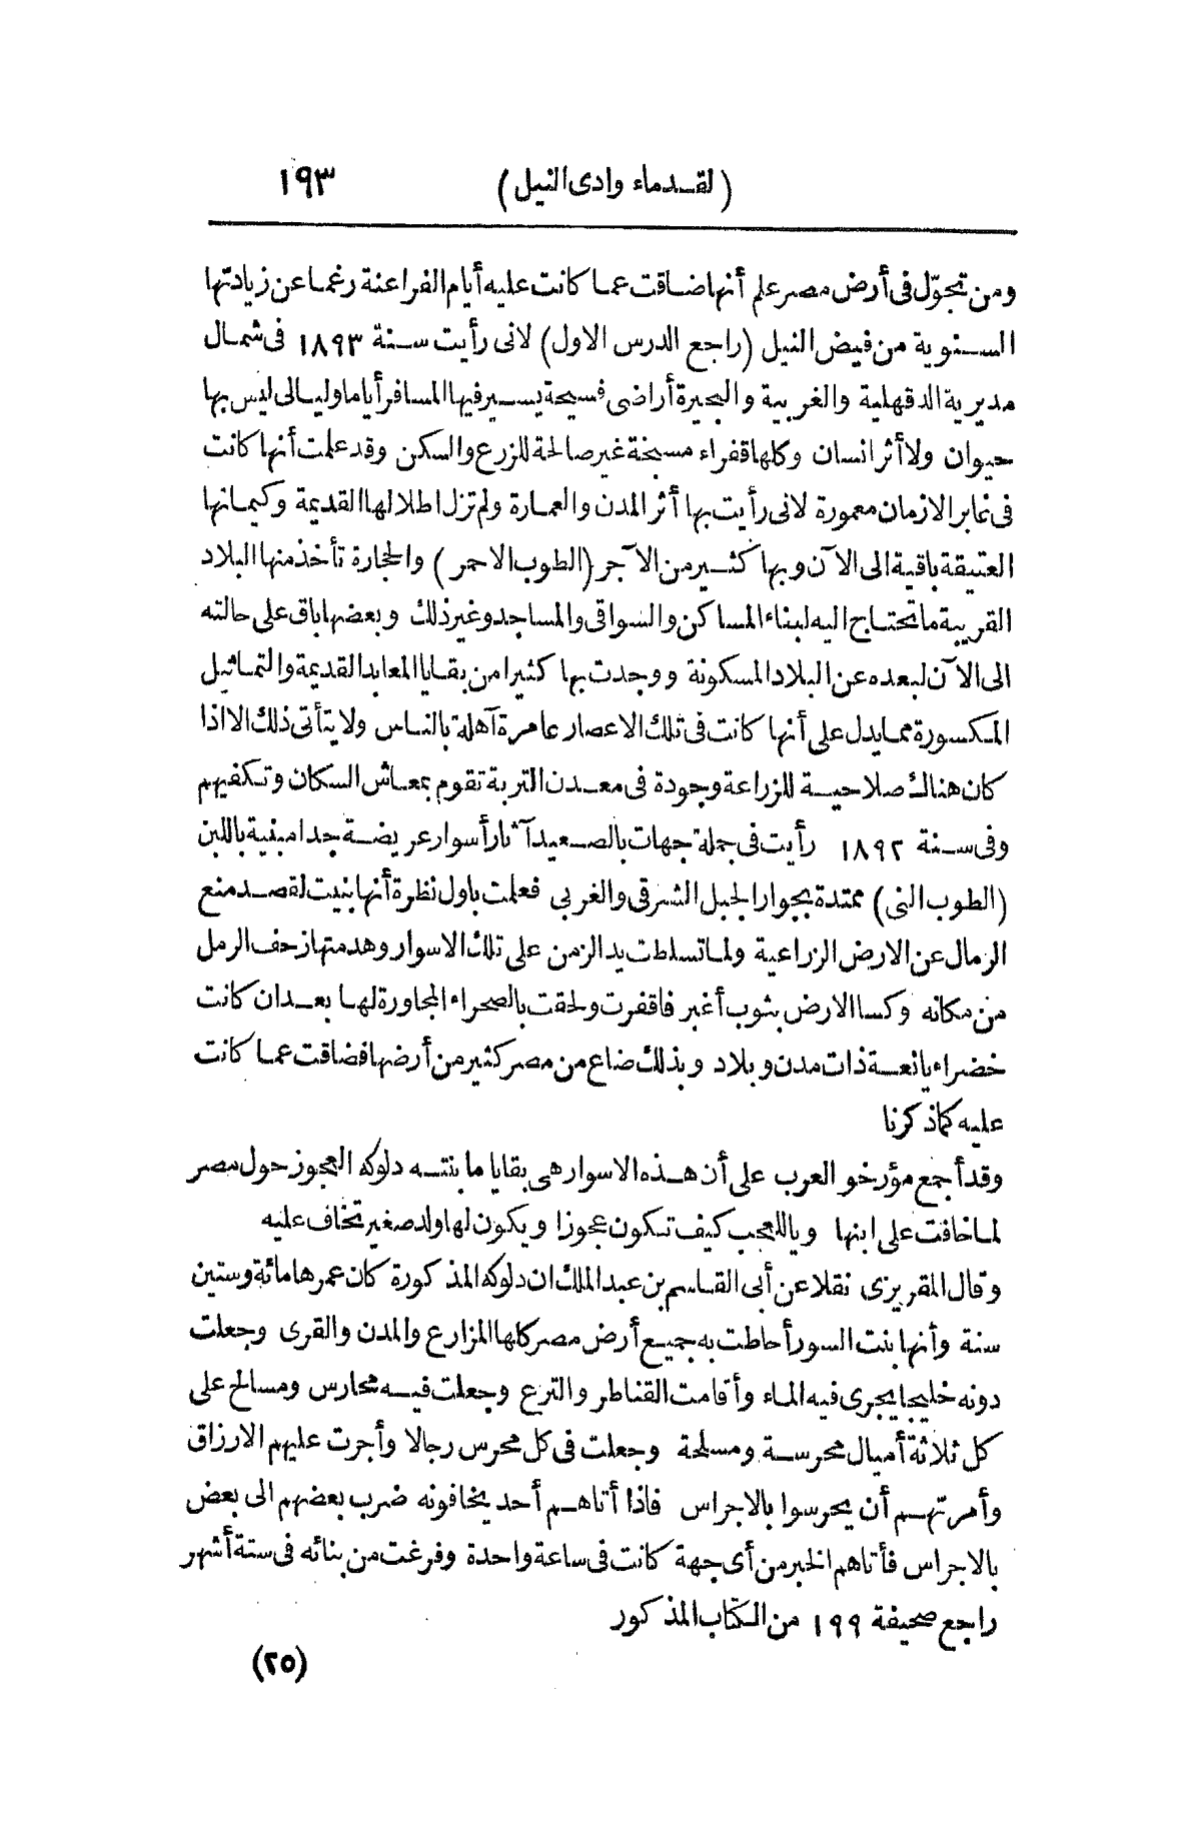 (لقدماء وادى النيل) ١٩٣
ومن تجوّل فى أرض مصر علم أنها ضاقت عما كانت عليه أيام الفراعنة رغما عن زيادتها
السنوية من فيض النيل (راجع الدرس الاول) لانى رأيت سنة ١٨٩٣ فى شمال
مديرية الدقهلية والغربية والبحيرة أراضى فسيحة يسير فيها المسافر أياما وليالى ليس بها
حيوان ولا أثر انسان وكلها قفراء مسبخة غير صالحة للزرع والسكن وقد علمت أنها كانت
فى غابر الازمان معمورة لانى رأيت بها أثر المدن والعمارة ولم تزل اطلالها القديمة وكيمانها
العتيقة باقية الى الآن وبها كثير من الآجر (الطوب الاحمر) والحجارة تأخذ منها البلاد
القريبة ما تحتاج اليه لبناء المساكن والسواقى والمساجد وغير ذلك وبعضها باق على حالته
الى الآن لبعده عن البلاد المسكونة ووجدت بها كثيرا من بقايا المعابد القديمة والتماثيل
المكسورة مما يدل على أنها كانت فى تلك الاعصار عامرة آهلة بالناس ولا يتأتى ذلك الا اذا
كان هناك صلاحية للزراعة وجودة فى معدن التربة تقوم بمعاش السكان وتكفيهم
وفى سنة ١٨٩٢ رأيت فى جملة جهات بالصعيد آثار أسوار عريضة جدا مبنية باللبن
(الطوب النى) ممتدة بجوار الجبل الشرقى والغربى فعلمت باول نظرة أنها بنيت لقصد منع
الرمال عن الارض الزراعية ولما تسلطت يد الزمن على تلك الاسوار وهدمتها زحف الرمل
من مكانه وكسا الارض بثوب أغبر فاقفرت ولحقت بالصحراء المجاورة لها بعد ان كانت
خضراء يانعة ذات مدن وبلاد وبذلك ضاع من مصر كثير من أرضها فضاقت عما كانت
عليه كما ذكرنا
وقد أجمع مؤرخو العرب على أن هذه الاسوار هى بقايا ما بنته دلوكه العجوز حول مصر
لما خافت على ابنها وياللعجب كيف تكون عجوزا ويكون لها ولد صغير تخاف عليه
وقال المقريزى نقلا عن أبى القاسم بن عبد الملك ان دلوكه المذكورة كان عمرها مائة وستين
سنة وأنها بنت السور أحاطت به جميع أرض مصر كلها المزارع والمدن والقرى وجعلت
دونه خليجا يجرى فيه الماء وأقامت القناطر والترع وجعلت فيه محارس ومسالح على
كل ثلاثة أميال محرسة ومسلحة وجعلت فى كل محرس رجالا وأجرت عليهم الارزاق
وأمرتهم أن يحرسوا بالاجراس فاذا أتاهم أحد يخافونه ضرب بعضهم الى بعض
بالاجراس فأتاهم الخبر من أى جهة كانت فى ساعة واحدة وفرغت من بنائه فى ستة أشهر
راجع صحيفة ١٩٩ من الكتاب المذكور
(٢٥)